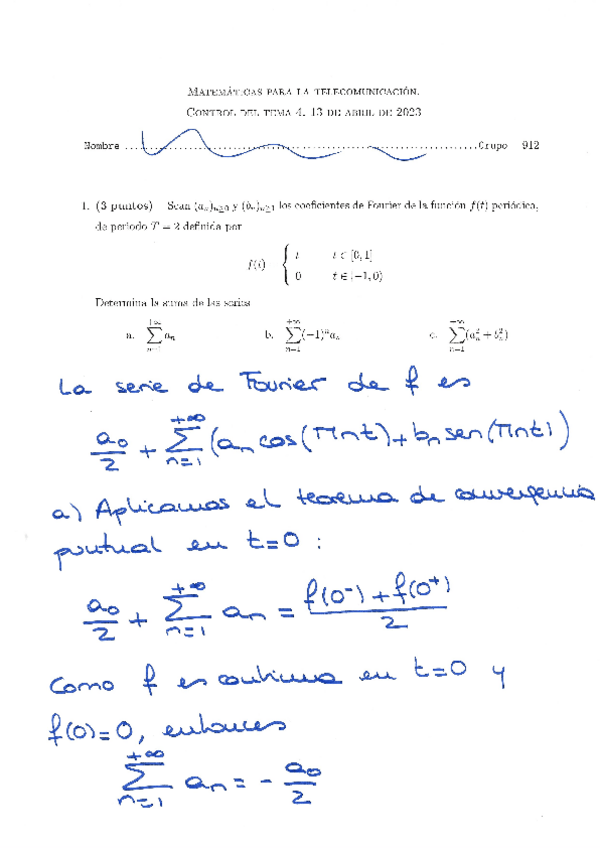 MATEMÁTICAS PARA LA TELECOMUNICACIÓN.
CONTROL DEL TEMA 4. 13 DE ABRIL DE 2023
Nombre ........................................Grupo 912
1. (3 puntos) Sean (aₙ)ₙ≥0 y (bₙ)ₙ≥1 los coeficientes de Fourier de la función f(t) periódica,
de periodo T = 2 definida por
f(t) { t t ∈ [0, 1]
0 t ∈ (−1, 0)
Determina la suma de las series
a. ∑_{n=1}^{+∞} aₙ b. ∑_{n=1}^{+∞} (−1)ⁿaₙ c. ∑_{n=1}^{+∞} (aₙ² + bₙ²)
La serie de Fourier de f es
a₀/2 + ∑_{n=1}^{+∞} (aₙ cos(πnt) + bₙ sen(πnt))
a) Aplicamos el teorema de convergencia
puntual en t=0 :
a₀/2 + ∑_{n=1}^{+∞} aₙ = (f(0⁻) + f(0⁺))/2
Como f es continua en t=0 y
f(0)=0, entonces
∑_{n=1}^{+∞} aₙ = - a₀/2